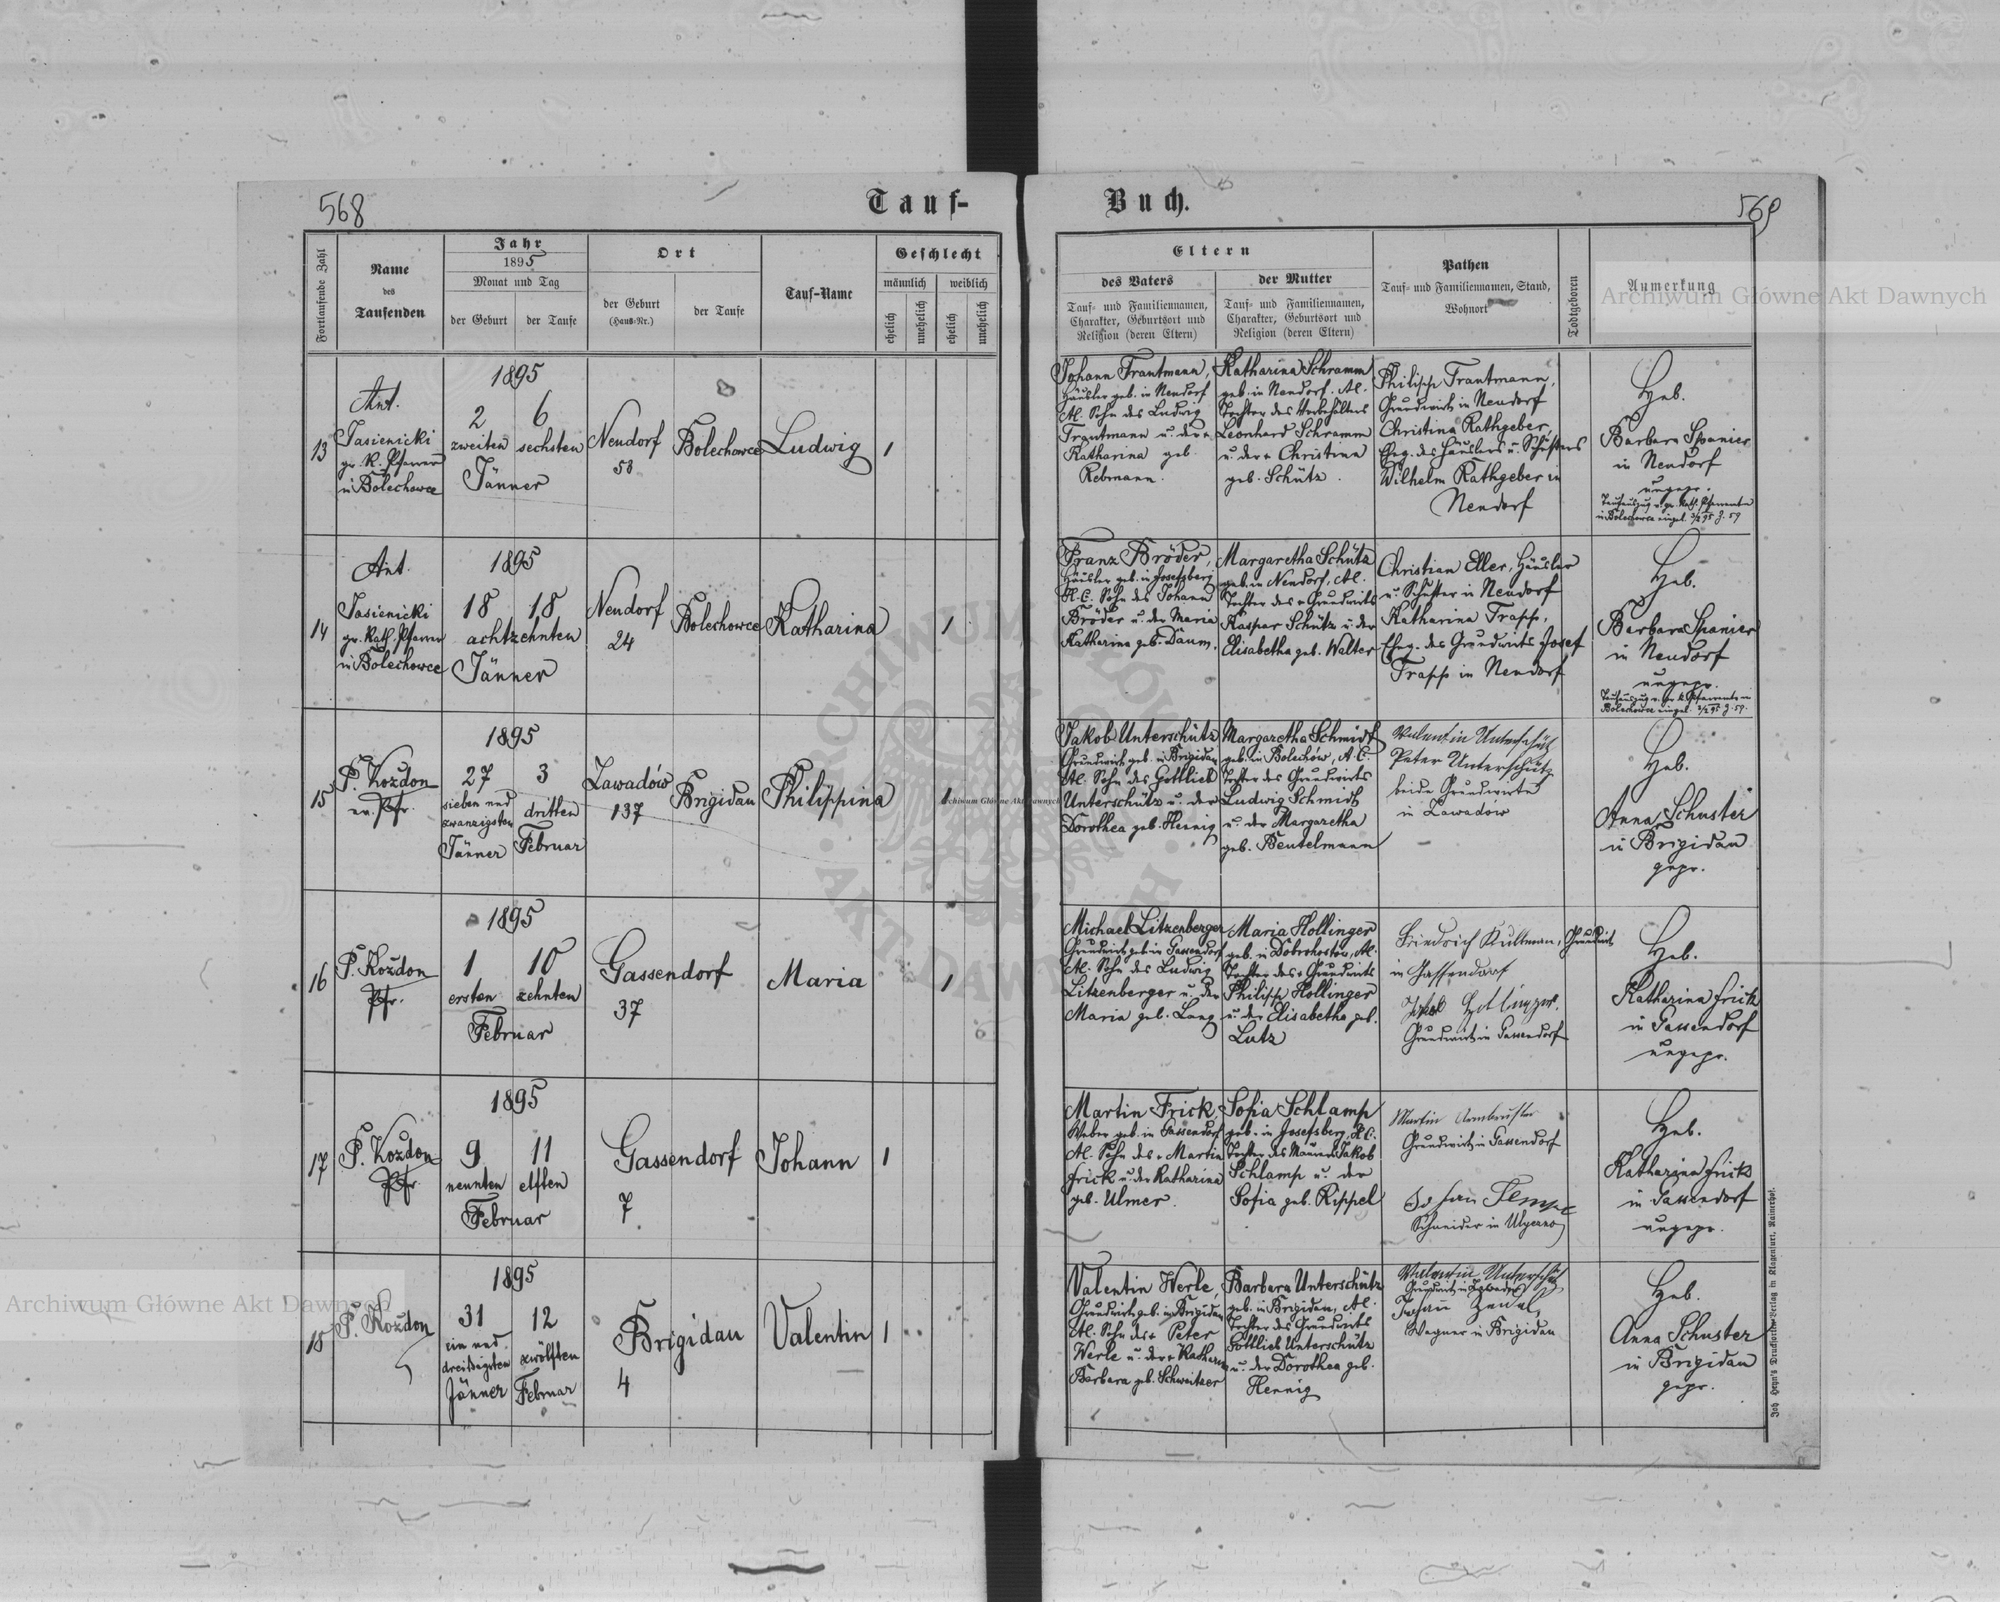 568
Tauf-
Buch.
569
Fortlaufende Zahl
Name
des
Taufenden
Jahr
1895
Monat und Tag
der Geburt
der Taufe
Ort
der Geburt
(Haus-Nr.)
der Taufe
Tauf-Name
Geschlecht
männlich
weiblich
ehelich
unehelich
ehelich
unehelich
Eltern
des Vaters
Tauf- und Familiennamen,
Charakter, Geburtsort und
Religion (deren Eltern)
der Mutter
Tauf- und Familiennamen,
Charakter, Geburtsort und
Religion (deren Eltern)
Pathen
Tauf- und Familiennamen, Stand,
Wohnort
Todtgeboren
Anmerkung
Archiwum Główne Akt Dawnych
13
Ant.
Jasienicki
gr. K. Pfarrer
in Bolechowce
1895
2
zweiten
6
sechsten
Jänner
Neudorf
53
Bolechowce
Ludwig
1
Johann Trautmann,
Häusler geb. in Neudorf
A.C. Sohn des Ludwig
Trautmann u. der +
Katharina geb.
Rebmann.
Katharina Schramm
geb. in Neudorf. A.C.
Tochter des Vorbehälters
Leonhard Schramm
u. der + Christina
geb. Schütz.
Philipp Trautmann,
Grundwirt in Neudorf
Christina Rathgeber,
Ehg. des Häuslers u. Schusters
Wilhelm Rathgeber in
Neudorf
Heb.
Barbara Spanier
in Neudorf
ungepr.
Taufauszug v. gr. kath. Pfarramte
in Bolechowce eingel. 3/2 95 Z. 59
14
Ant.
Jasienicki
gr. Kath. Pfarrer
in Bolechowce
1895
18 18
achtzehnten
Jänner
Neudorf
24
Bolechowce
Katharina
1
Franz Bröder,
Häusler geb. in Josefsberg
H.C. Sohn des Johann
Bröder u. der Maria
Katharina geb. Daum.
Margaretha Schütz
geb. in Neudorf, A.C.
Tochter des + Grundwirts
Kaspar Schütz u. der
Elisabetha geb. Walter
Christian Eller, Häusler
u. Schuster in Neudorf
Katharina Trapp,
Ehg. des Grundwirts Josef
Trapp in Neudorf
Heb.
Barbara Spanier
in Neudorf
ungepr.
Bolechowce eingel. 3/2 95 Z. 59.
15
P. Kozdon
ev. Pfr.
1895
27
sieben und
zwanzigsten
Jänner
3
dritten
Februar
Zawadów
137
Brigidau
Philippina
1
Jakob Unterschütz
Grundwirt geb. in Brigidau
A.C. Sohn des Gottlieb
Unterschütz u. der
Dorothea geb. Hennig
Margaretha Schmidt
geb. in Bolechów, A.C.
Tochter des Grundwirts
Ludwig Schmidt
u. der Margaretha
geb. Beutelmann
Valentin Unterschütz
Peter Unterschütz
beide Grundwirte
in Zawadów
Heb.
Anna Schuster
in Brigidau
gepr.
16
P. Kozdon
Pfr.
1895
1
ersten
10
zehnten
Februar
Gassendorf
37
Maria
1
Michael Litzenberger
Grundwirt geb. in Gassendorf
A.C. Sohn des Ludwig
Litzenberger u. der
Maria geb. Lang
Maria Hollinger
geb. in Dobrohostów, A.C.
Tochter des + Grundwirts
Philipp Hollinger
u. der Elisabetha geb.
Lutz
Friedrich Kullmann, Grundwirt
in Gassendorf
Grundwirt in Gassendorf
Heb.
Katharina Frick
in Gassendorf
ungepr.
17
P. Kozdon
Pfr.
1895
9
neunten
11
elften
Februar
Gassendorf
7
Johann
1
Martin Frick,
Weber geb. in Gassendorf
A.C. Sohn des + Martin
Frick u. der Katharina
geb. Ulmer.
Sofia Schlamp
geb. in Josefsberg, H.C.
Tochter des Maurers Jakob
Schlamp u. der
Sofia geb. Rippel
Martin Armbruster
Grundwirt in Gassendorf
Schneider in Ulyczno
Heb.
Katharina Frick
in Gassendorf
ungepr.
18
P. Kozdon
1895
31
ein und
dreißigsten
Jänner
12
zwölften
Februar
Brigidau
4
Valentin
1
Valentin Werle,
Grundwirt geb. in Brigidau
A.C. Sohn des + Peter
Werle u. der + Katharina
Barbara geb. Schweitzer
Barbara Unterschütz
geb. in Brigidau, A.C.
Tochter des Grundwirts
Gottlieb Unterschütz
u. der Dorothea geb.
Hennig
Valentin Unterschütz
Grundwirt in Zawadów
Wagner in Brigidau
Heb.
Anna Schuster
in Brigidau
gepr.
Joh Heyn's Drucksorten-Verlag in Klagenfurt, Rainerhof.
Archiwum Główne Akt Dawnych
Archiwum Główne Akt Dawnych
ARCHIWUM GŁÓWNE
AKT DAWNYCH